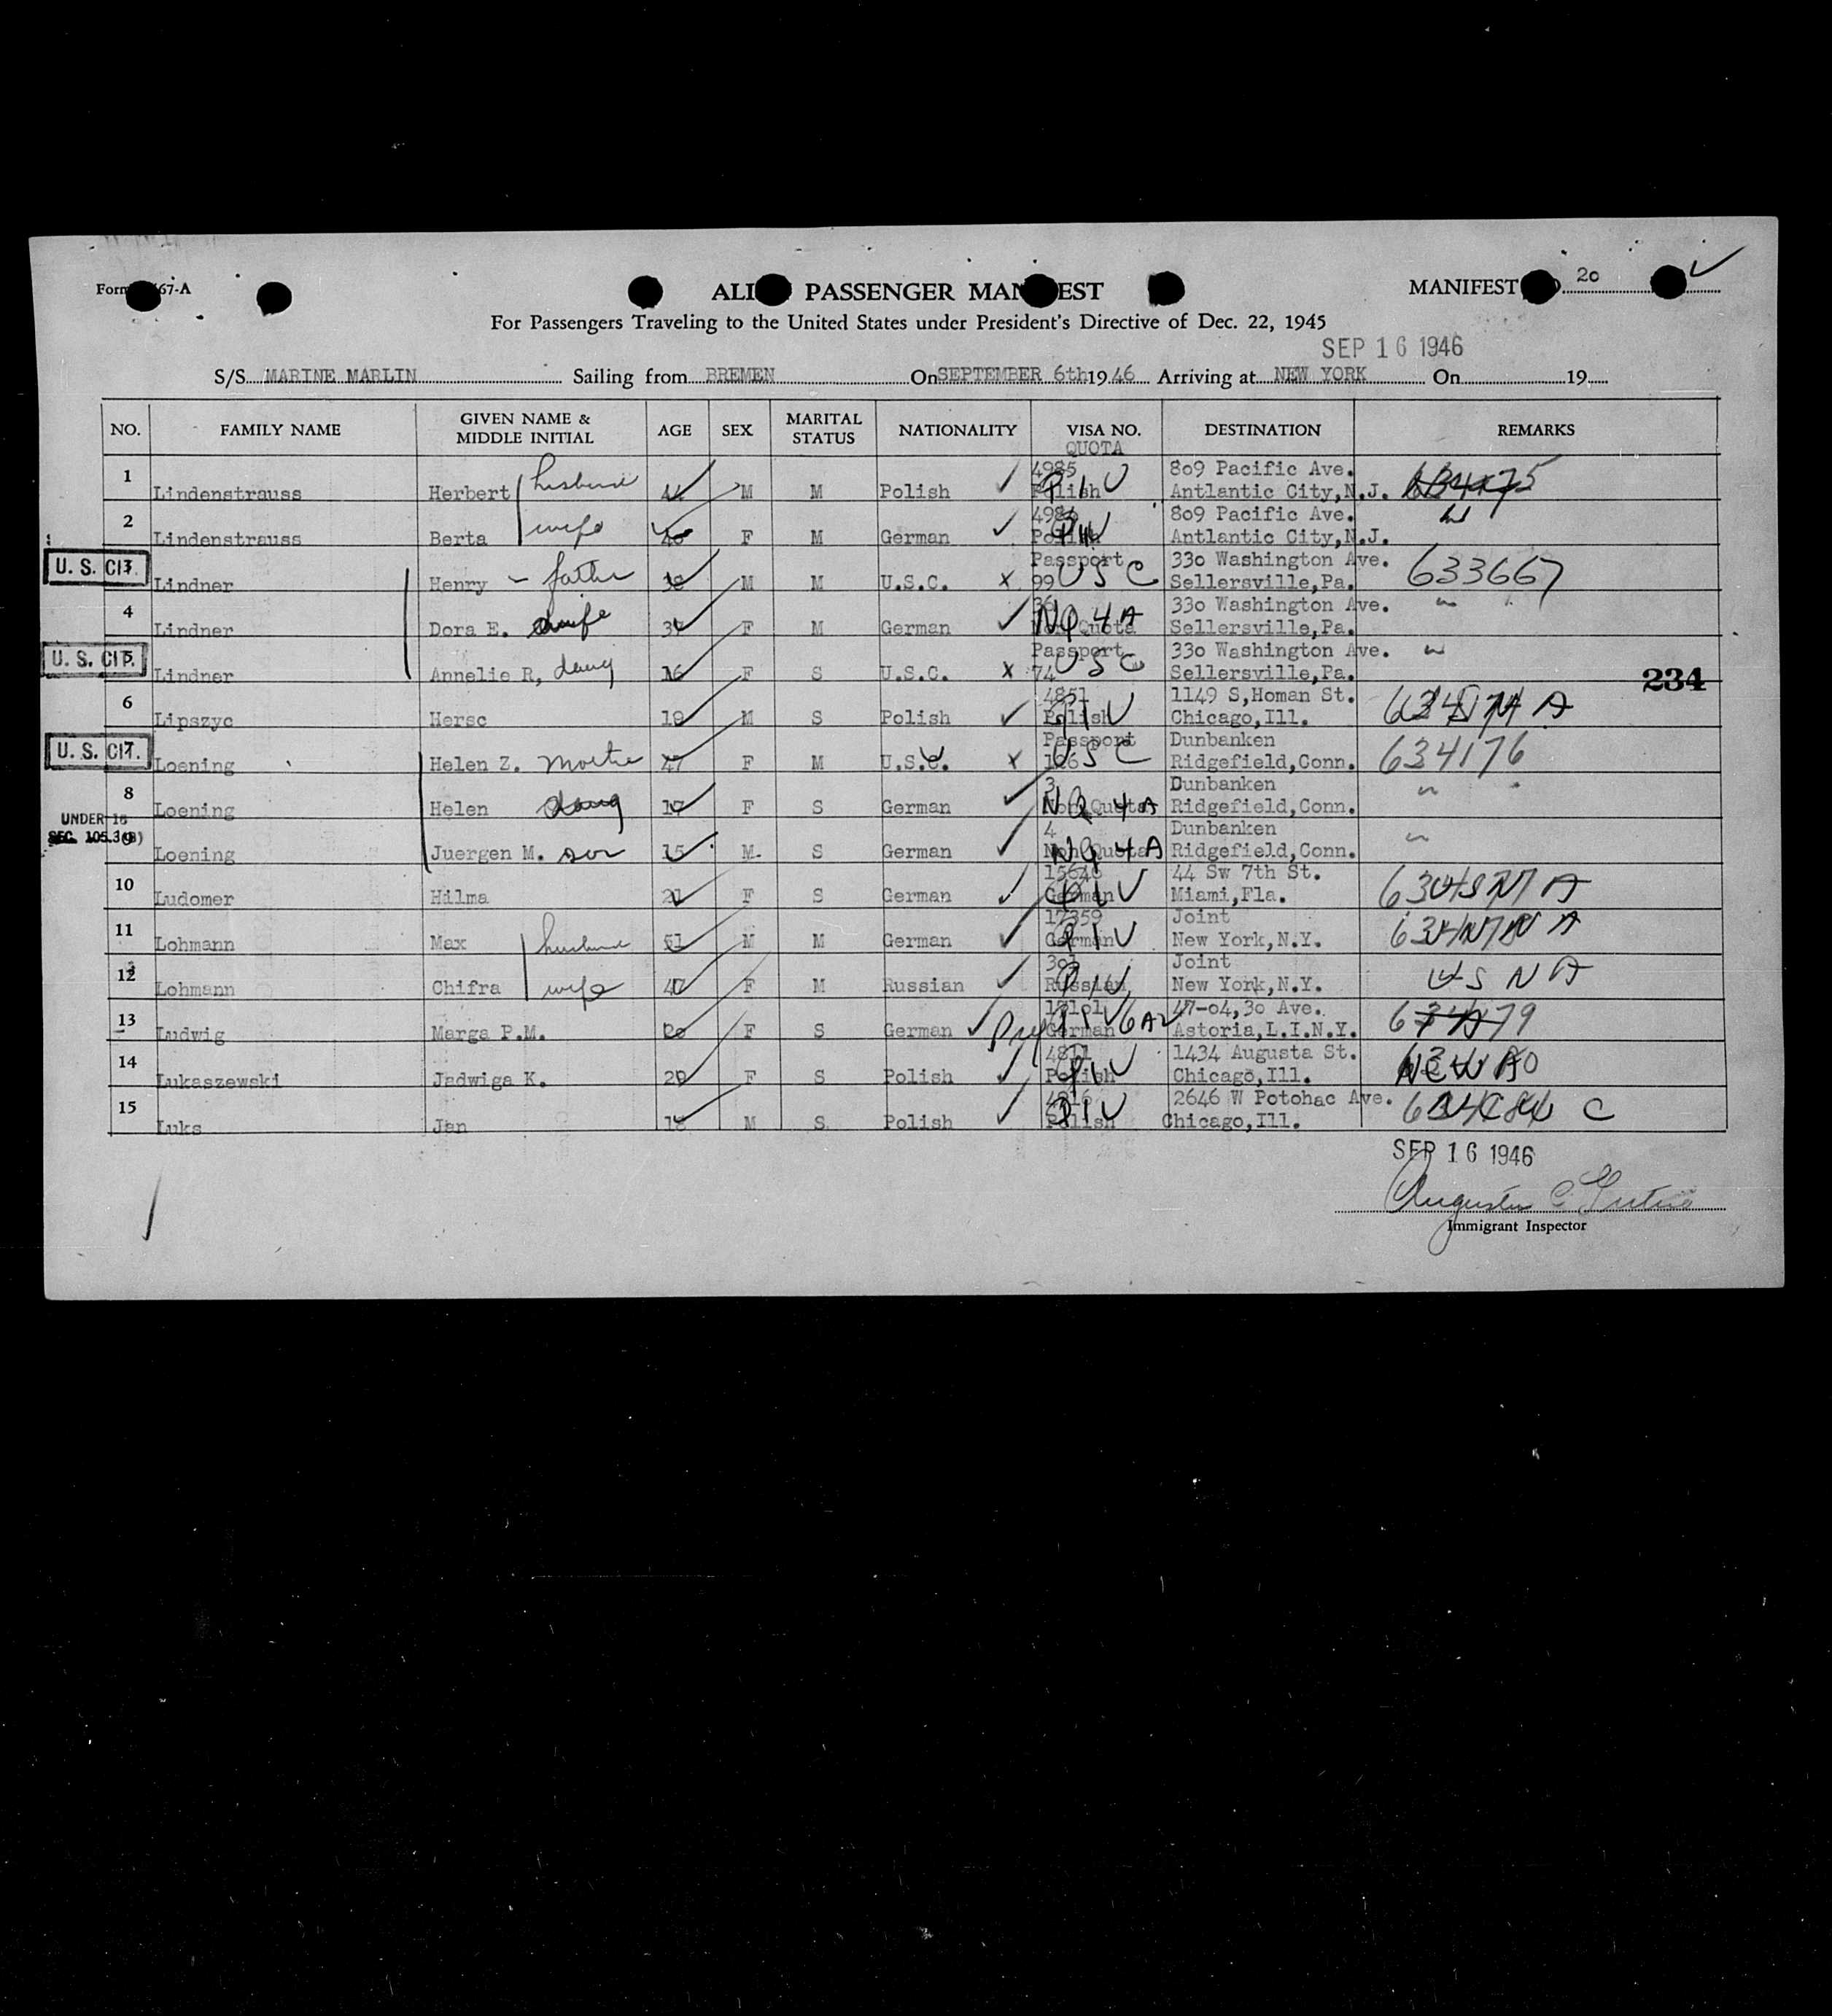 Form 67-A
ALI PASSENGER MAN EST
MANIFEST 20
For Passengers Traveling to the United States under President's Directive of Dec. 22, 1945
SEP 16 1946
S/S MARINE MARLIN Sailing from BREMEN On SEPTEMBER 6th 1946 Arriving at NEW YORK On 19
NO. FAMILY NAME GIVEN NAME & MIDDLE INITIAL AGE SEX MARITAL STATUS NATIONALITY VISA NO. DESTINATION REMARKS
QUOTA
4985 809 Pacific Ave.
1 Lindenstrauss Herbert husband M M Polish Polish Antlantic City,N.J.
4986 809 Pacific Ave.
2 Lindenstrauss Berta wife F M German Polish Antlantic City,N.J.
Passport 330 Washington Ave.
U. S. CIT. 3 Lindner Henry - father 38 M M U.S.C. x 99 USC Sellersville,Pa. 633667
36 330 Washington Ave.
4 Lindner Dora E. wife F M German NQ 4A Sellersville,Pa.
Passport 330 Washington Ave.
U. S. CIT. 5 Lindner Annelie R, daug 16 F S U.S.C. x 74 USC Sellersville,Pa.
234
4851 1149 S,Homan St.
6 Lipszyc Hersc M S Polish Polish Chicago,Ill.
Passport Dunbanken
U. S. CIT. 7 Loening Helen Z. 47 F M U.S.C. x USC Ridgefield,Conn. 634176
3 Dunbanken
8 Loening Helen daug 17 F S German NQ 4A Ridgefield,Conn.
UNDER 16
SEC. 105.3(B)
4 Dunbanken
9 Loening Juergen M. son 15 M. S German NQ 4A Ridgefield,Conn.
44 Sw 7th St.
10 Ludomer Hilma 21 F S German German Miami,Fla.
17359 Joint
11 Lohmann Max husband 51 M M German German New York,N.Y.
Joint
12 Lohmann Chifra wife 47 F M Russian Russian New York,N.Y.
47-04,30 Ave.
13 Ludwig Marga P.M. F S German German Astoria,L.I.N.Y.
4811 1434 Augusta St.
14 Lukaszewski Jadwiga K. F S Polish Polish Chicago,Ill.
4816 2646 W Potohac Ave.
15 Luks Jan M S Polish Polish Chicago,Ill.
SEP 16 1946
Immigrant Inspector